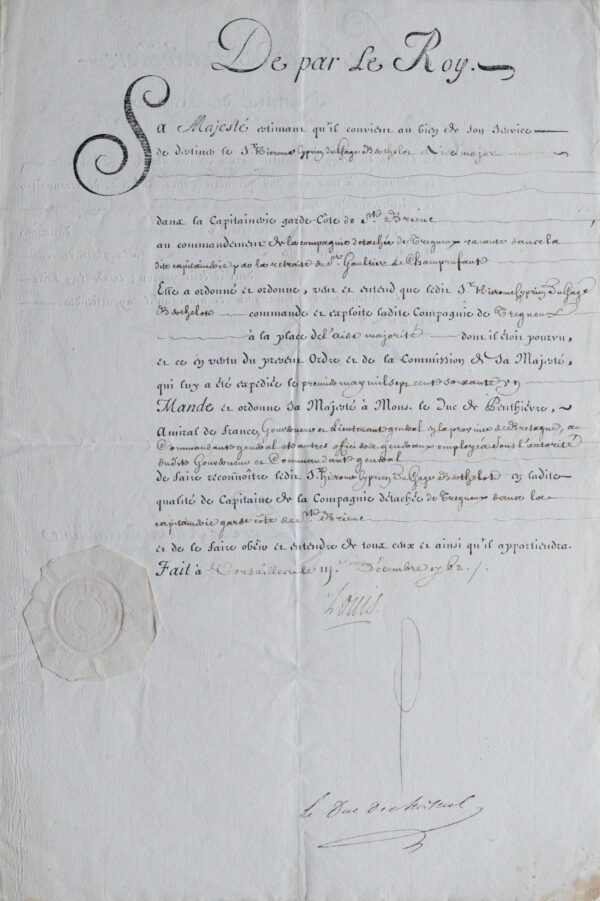 De par Le Roy.
SA Majesté estimant qu'il convient au bien de son service
de destiner le Sr. Hierome Cyprien Du Gage Berthelot Aide major
dans la Capitainerie garde-Côte de St. Brieuc
au commandement de la compagnie détachée de Tregueux vacante dans la
dite capitainerie par la retraite du Sr. Gaultier de Champufant
Elle a ordonné et ordonne, veut et entend que ledit Sr. Hierome Cyprien Du Gage
Berthelot commande et exploite ladite Compagnie de Tregueux
à la place de l'aide majorité dont il étoit pourvu,
et ce en vertu du present Ordre et de la Commission de Sa Majesté,
qui luy a été expediée le premier may mil sept cent soixante un
Mande et ordonne Sa Majesté à Mons. le Duc de Penthièvre,
Amiral de France, Gouverneur et Lieutenant general en la province de Bretagne, au
Commandant general et autres officiers generaux employés sous l'autorité
dudit Gouverneur et Commandant general
de faire reconnoître ledit Sr. Hierome Cyprien Du Gage Berthelot en ladite
qualité de Capitaine de la Compagnie détachée de Tregueux dans la
capitainerie garde côte de St. Brieuc
et de le faire obéir et entendre de tous ceux et ainsi qu'il appartiendra.
Fait à Versailles le Décembre 1762
Louis
Le Duc De choiseul